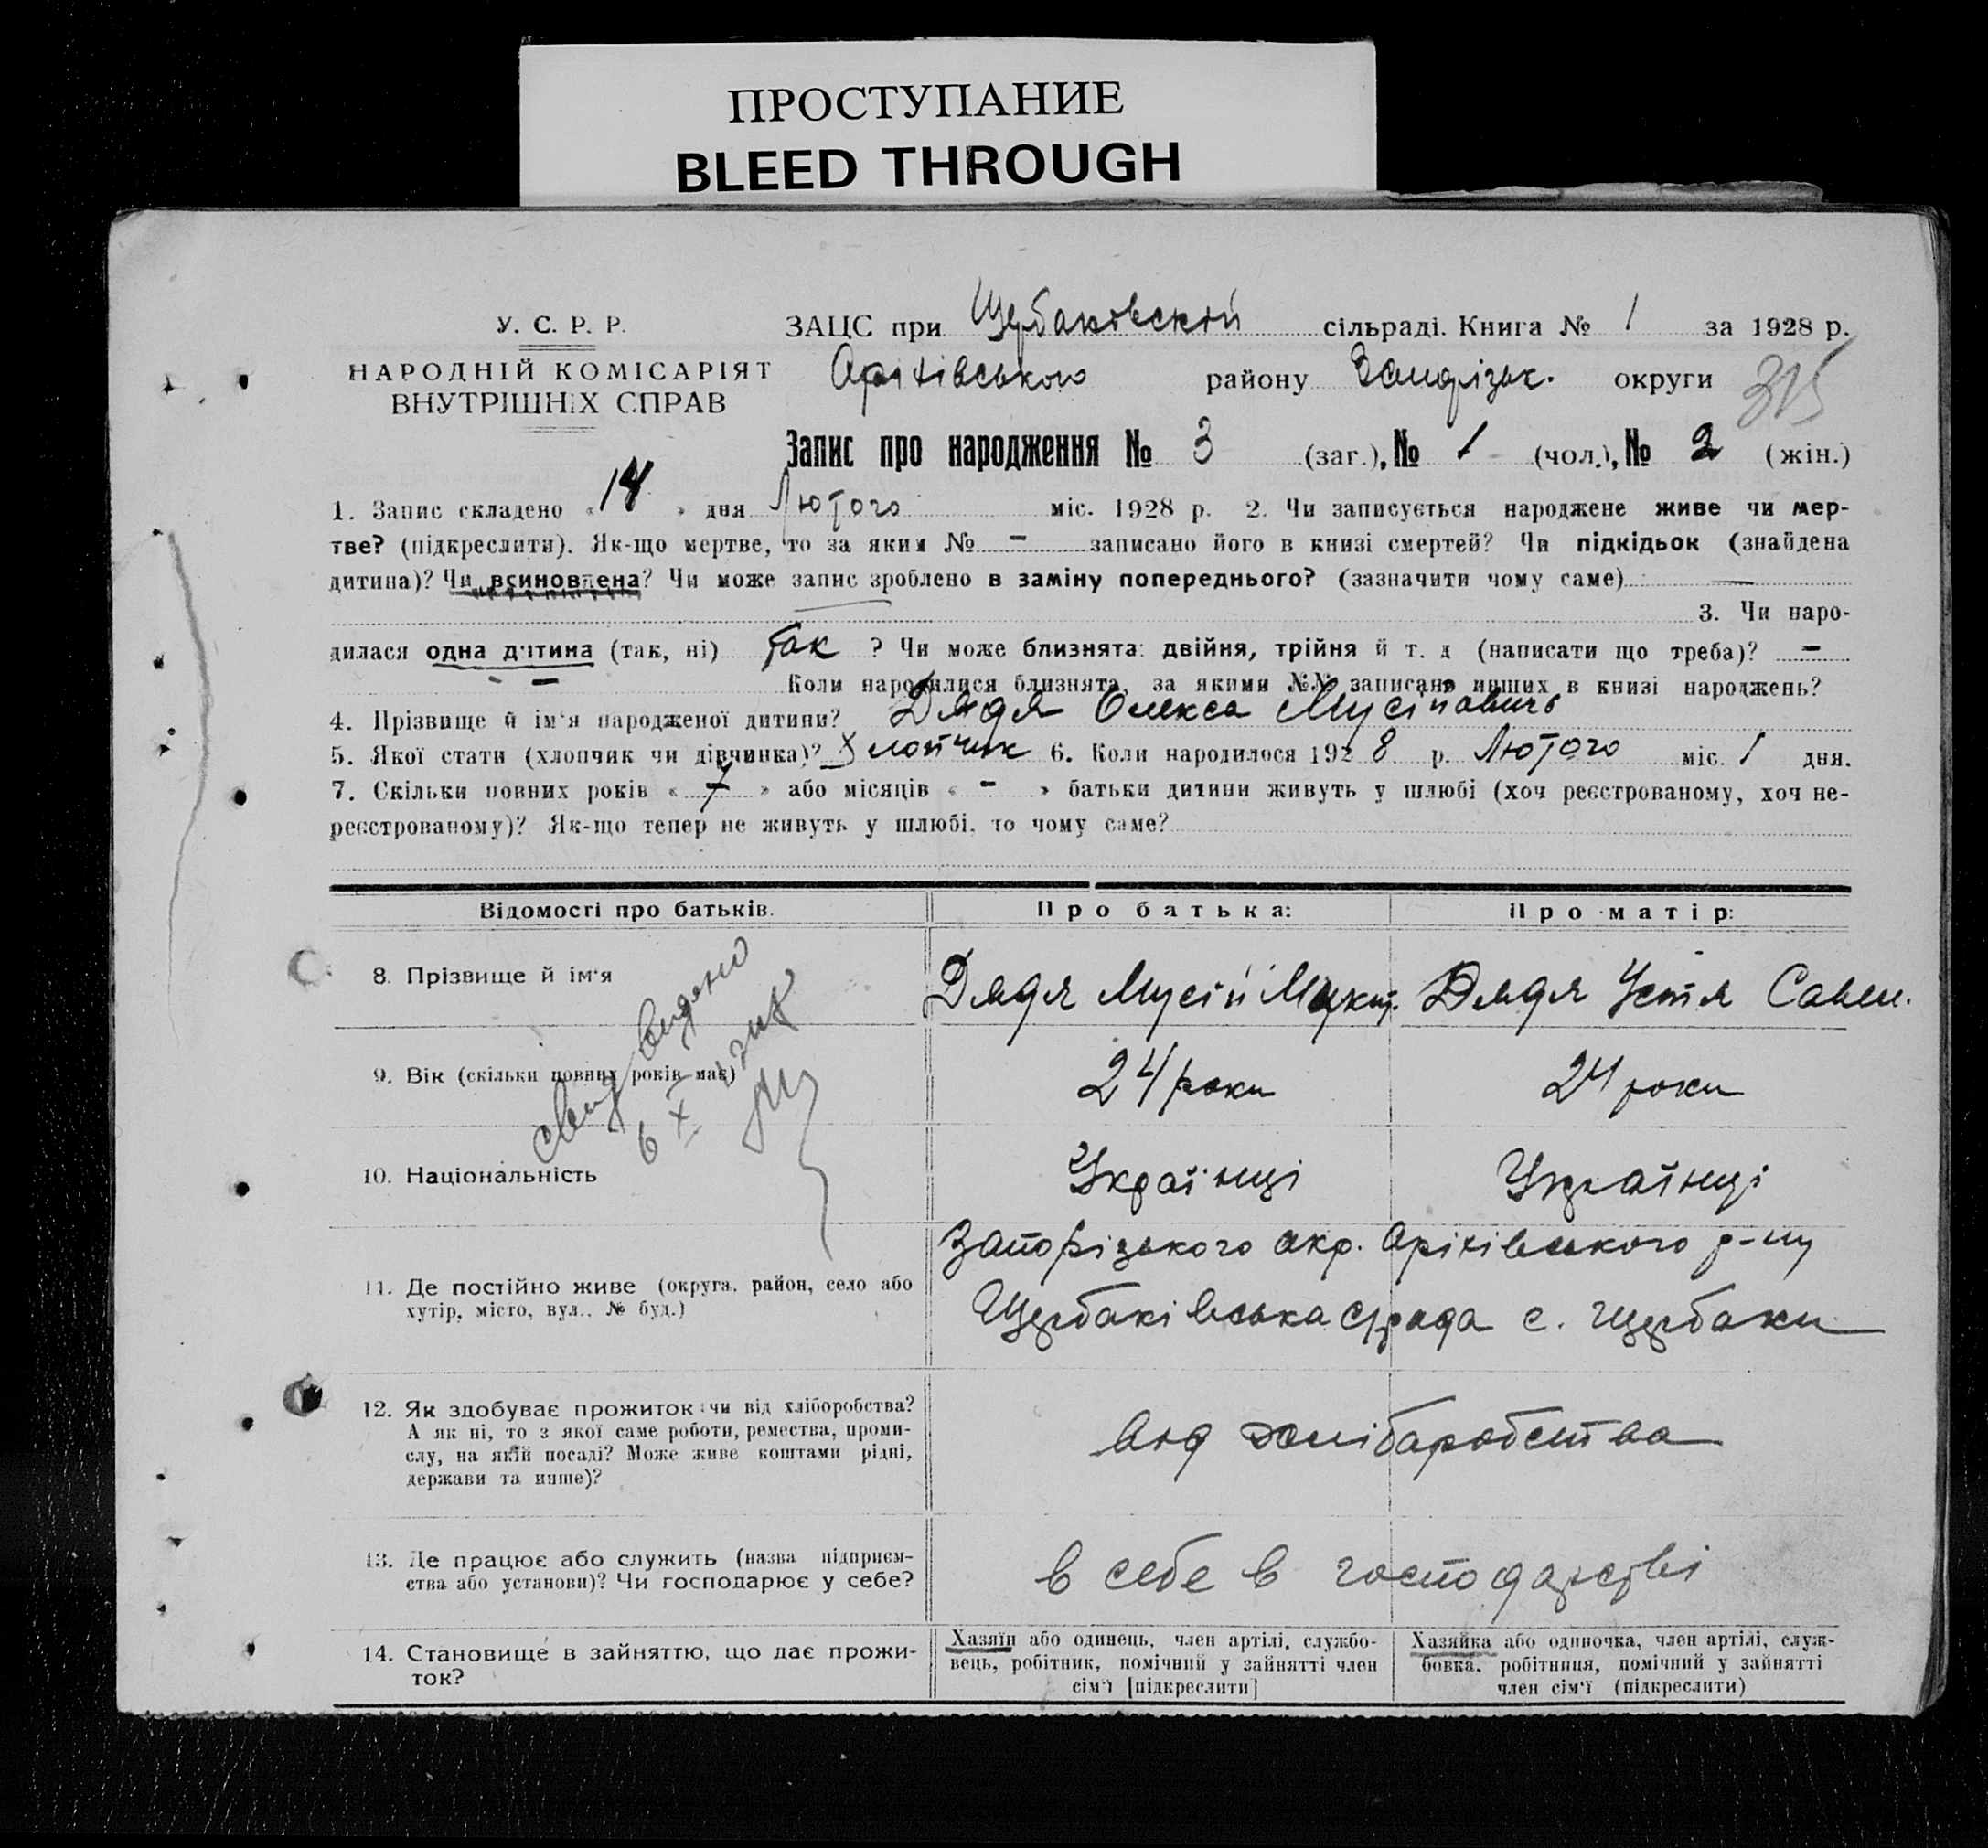 ПРОСТУПАНИЕ
BLEED THROUGH
У. С. Р. Р.
НАРОДНІЙ КОМІСАРІЯТ
ВНУТРІШНіХ СПРАВ
ЗАЦС при Щербаковской сільраді. Книга № 1 за 1928 р.
Оріхівського району Запорізьк. округи 315
Запис про народження № 3 (заг.), № 1 (чол.), № 2 (жін.)
1. Запис складено « 14 » дня Лютого міс. 1928 р. 2. Чи записується народжене живе чи мер-
тве? (підкреслити). Як-що мертве, то за яким № – записано його в книзі смертей? Чи підкідьок (знайдена
дитина)? Чи всиновлена? Чи може запис зроблено в заміну попереднього? (зазначити чому саме) —
3. Чи наро-
дилася одна дитина (так, ні) так ? Чи може близнята: двійня, трійня й т. д (написати що треба)? –
– Коли народилися близнята, за якими №№ записано инших в книзі народжень?
4. Прізвище й ім'я народженої дитини? Дядя Олекса Мусіпавичь
5. Якої стати (хлопчик чи дівчинка)? Хлопчик 6. Коли народилося 1928 р. Лютого міс. 1 дня.
7. Скільки повних років « 7 » або місяців « - » батьки дитини живуть у шлюбі (хоч реєстрованому, хоч не-
реєстрованому)? Як-що тепер не живуть у шлюбі, то чому саме?
Відомості про батьків.
Про батька:
Про матір:
8. Прізвище й ім'я
Дядя Мусій Микит.
Дядя Устя Савел.
9. Вік (скільки повних років має)
24 роки
24 роки
10. Національність
Українці
Українці
11. Де постійно живе (округа, район, село або
хутір, місто, вул., № буд.)
Запорізького окр. Оріхівського р-ну
Щербаківська с/рада с. Щербаки
12. Як здобуває прожиток: чи від хліборобства?
А як ні, то з якої саме роботи, ремества, проми-
слу, на якій посаді? Може живе коштами рідні,
держави та инше)?
від хлібаробства
13. Де працює або служить (назва підприєм-
ства або установи)? Чи господарює у себе?
в себе в господарстві
14. Становище в зайняттю, що дає прожи-
ток?
Хазяїн або одинець, член артілі, службо-
вець, робітник, помічний у зайнятті член
сім'ї [підкреслити]
Хазяйка або одиночка, член артілі, служ-
бовка, робітниця, помічний у зайнятті
член сім'ї (підкреслити)
6 X